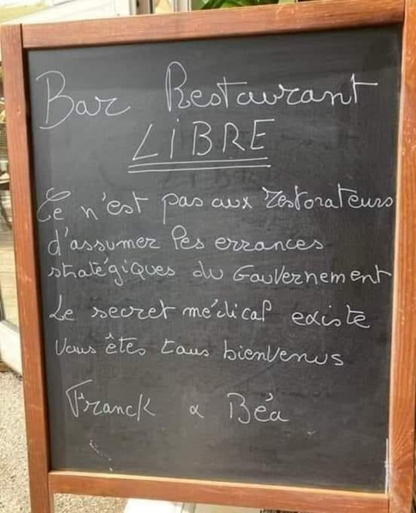 Bar Restaurant
LIBRE
Ce n'est pas aux restorateurs
d'assumer les errances
stratégiques du Gouvernement
Le secret médical existe
Vous êtes tous bienvenus
Franck & Béa